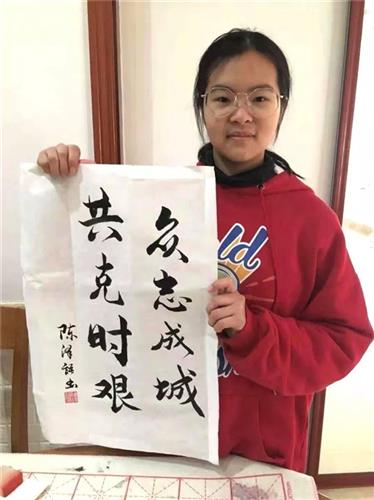 众志成城
共克时艰
陈泽书
ld